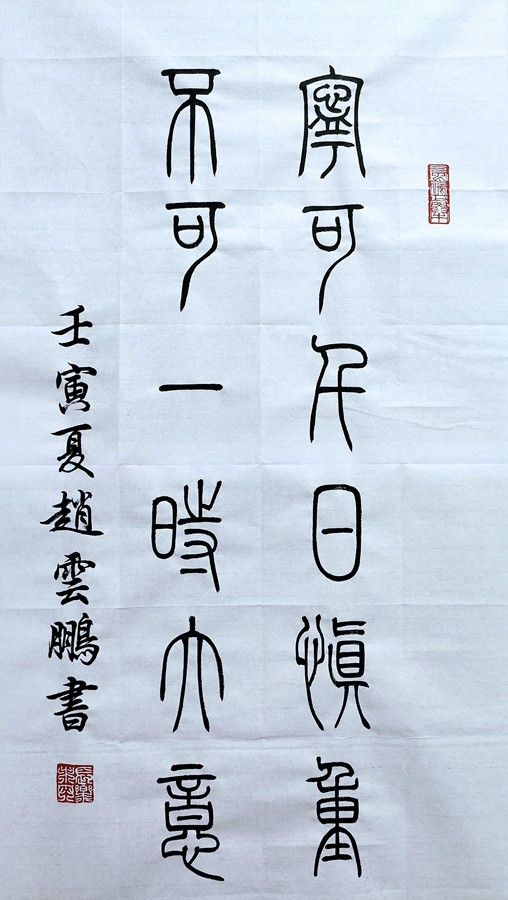 寧可千日慎重
不可一時大意
壬寅夏趙雲鵬書